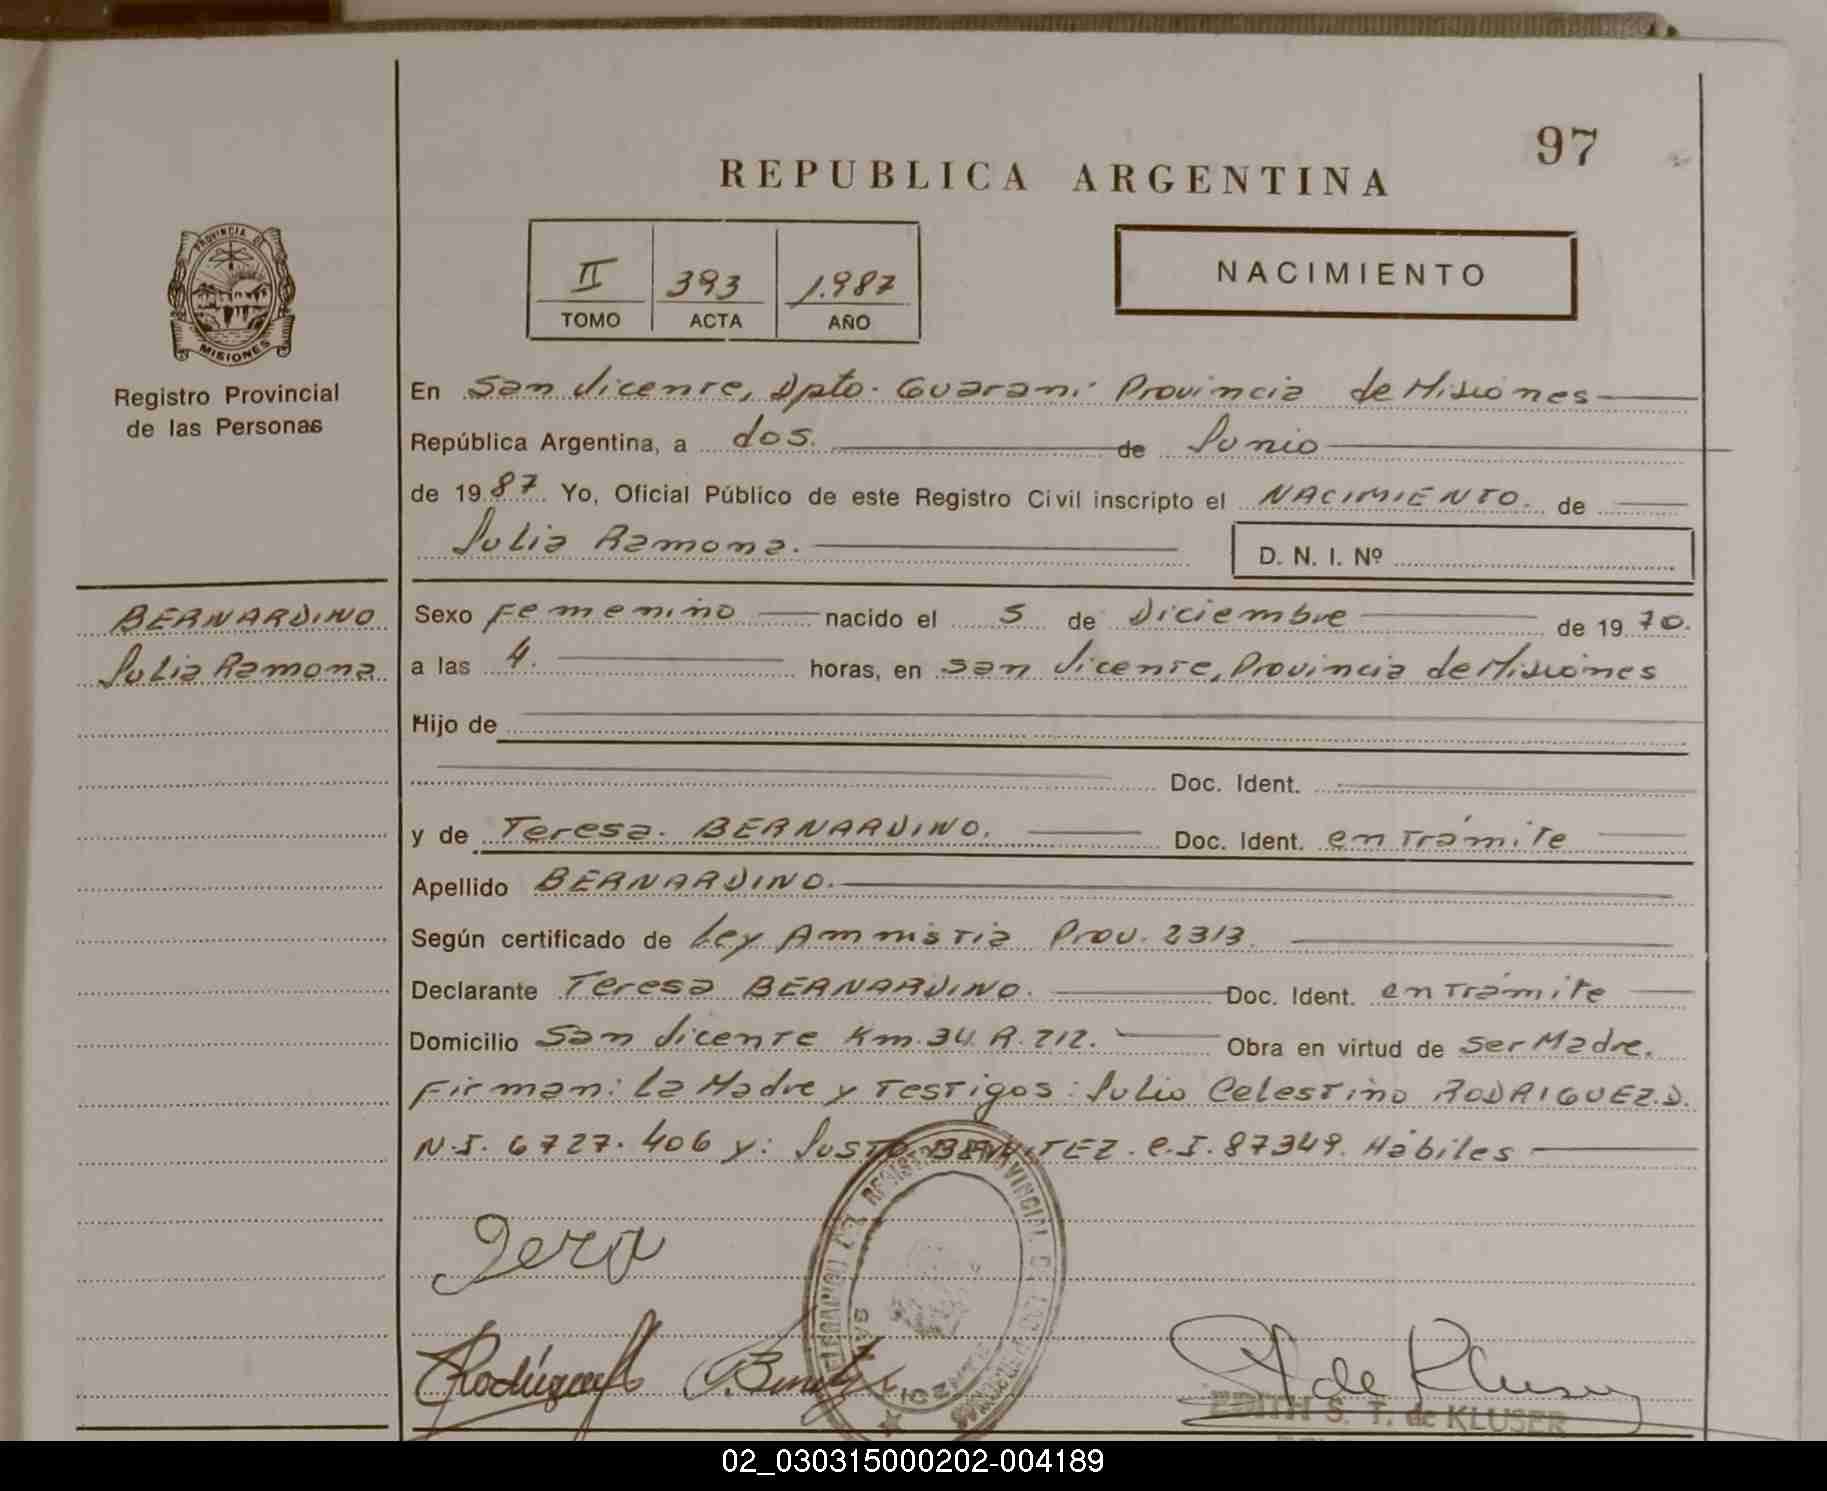 97
REPUBLICA ARGENTINA
PROVINCIA DE
MISIONES
Registro Provincial
de las Personas
II 393 1.987
TOMO ACTA AÑO
NACIMIENTO
En San Vicente, Dpto. Guaraní Provincia de Misiones
República Argentina, a dos. de Junio
de 1987 Yo, Oficial Público de este Registro Civil inscripto el NACIMIENTO. de
Julia Ramona.
D. N. I. Nº
BERNARDINO
Julia Ramona
Sexo Femenino nacido el 5 de Diciembre de 1970.
a las 4. horas, en San Vicente, Provincia de Misiones
Hijo de
Doc. Ident.
y de Teresa. BERNARDINO. Doc. Ident. en Trámite
Apellido BERNARDINO.
Según certificado de Ley Amnistia Prov. 2313.
Declarante Teresa BERNARDINO. Doc. Ident. en Trámite
Domicilio San Vicente Km. 34. R. 212. Obra en virtud de ser Madre.
Firman: La Madre y Testigos: Julio Celestino RODRIGUEZ. D.
N.I. 6727.406 y: JUSTO BENITEZ. C.I. 87349. Hábiles
EDITH S. T. de KLUSER
02_030315000202-004189